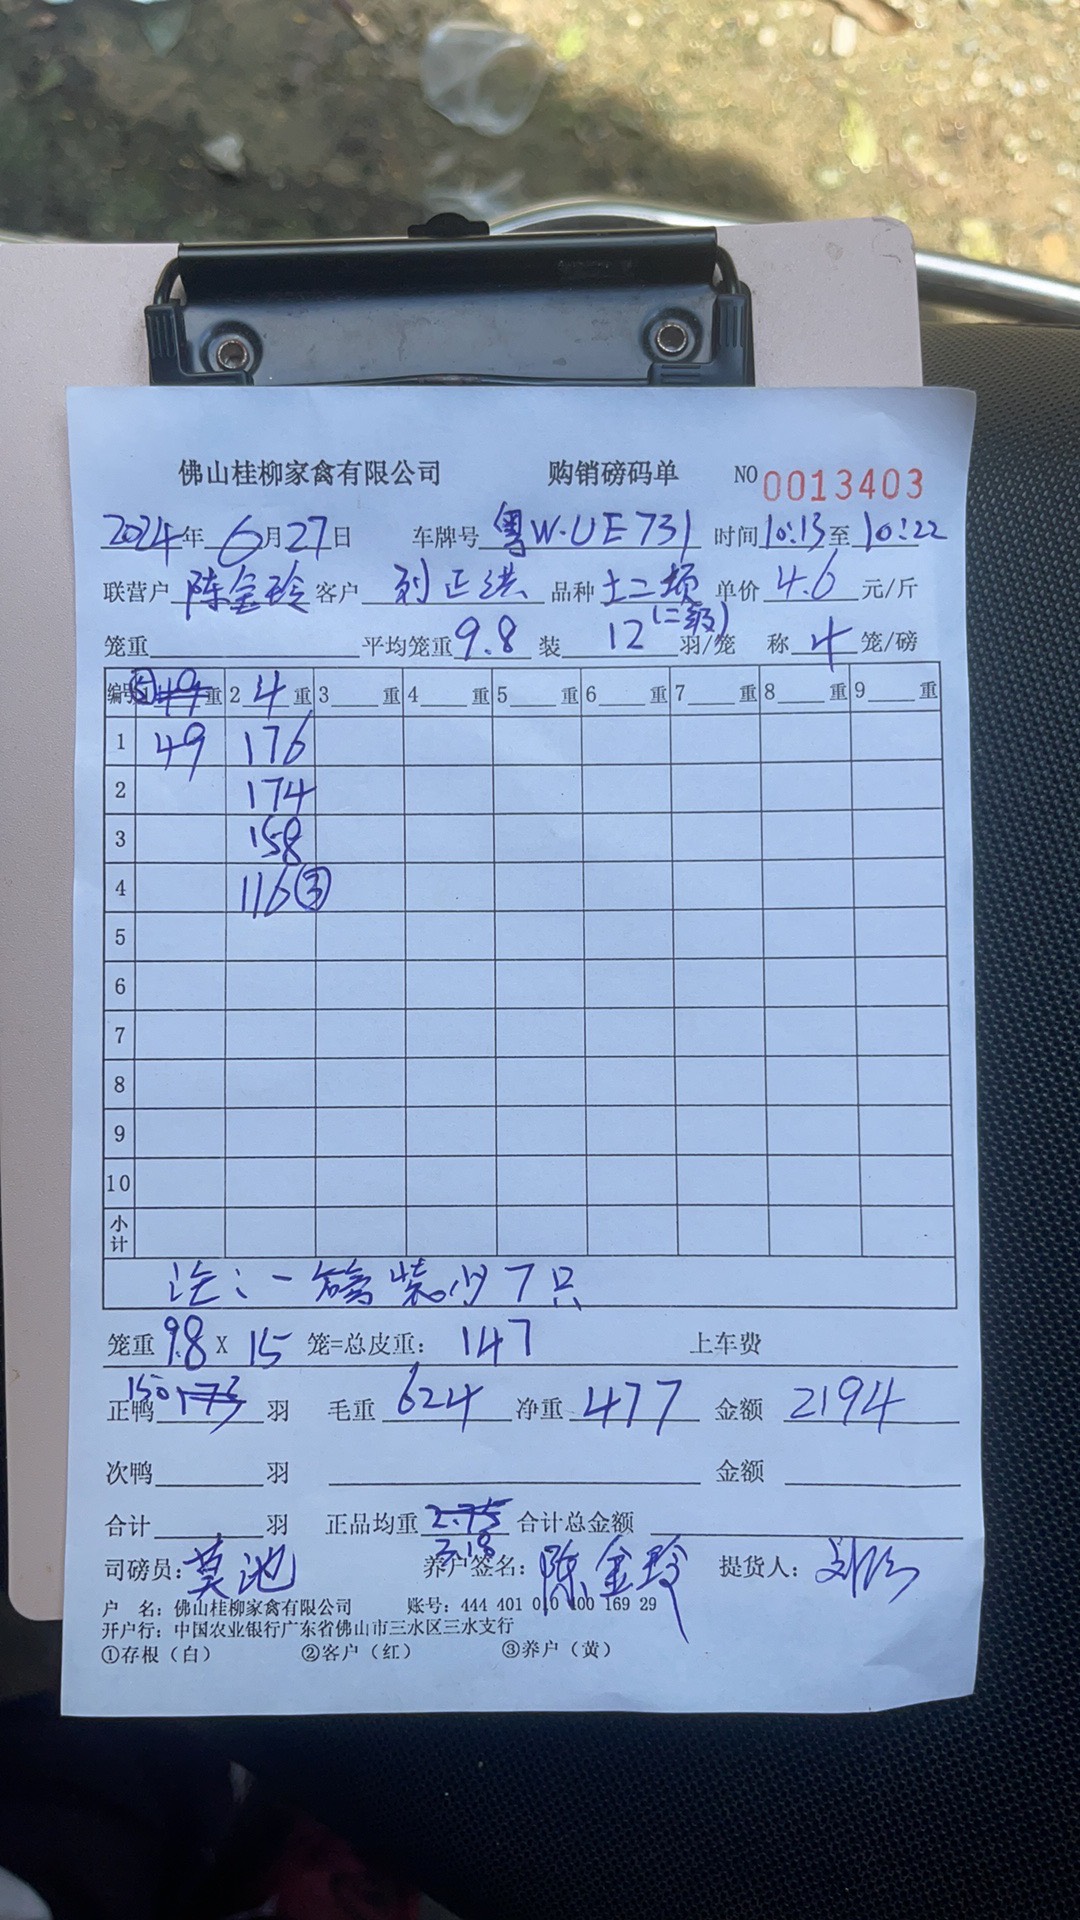 佛山桂柳家禽有限公司 购销磅码单 NO 0013403
2024年 6月27日 车牌号 粤W·UE731 时间10:13至10:22
联营户 陈金玲 客户 刘正洪 品种 土二项(二级) 单价 4.6 元/斤
笼重 平均笼重 9.8 装 12 羽/笼 称 4 笼/磅
编号 1 重 2 4 重 3 重 4 重 5 重 6 重 7 重 8 重 9 重
1 49 176
2 174
3 158
4 116③
5
6
7
8
9
10
小计
注:一磅装少7只
笼重 9.8 X 15 笼=总皮重: 147 上车费
正鸭 150 羽 毛重 624 净重 477 金额 2194
次鸭 羽 金额
合计 羽 正品均重 2.75 3.18 合计总金额
司磅员: 莫池 养户签名: 陈金玲 提货人:
户 名: 佛山桂柳家禽有限公司 账号: 444 401 010 400 169 29
开户行: 中国农业银行广东省佛山市三水区三水支行
①存根（白） ②客户（红） ③养户（黄）